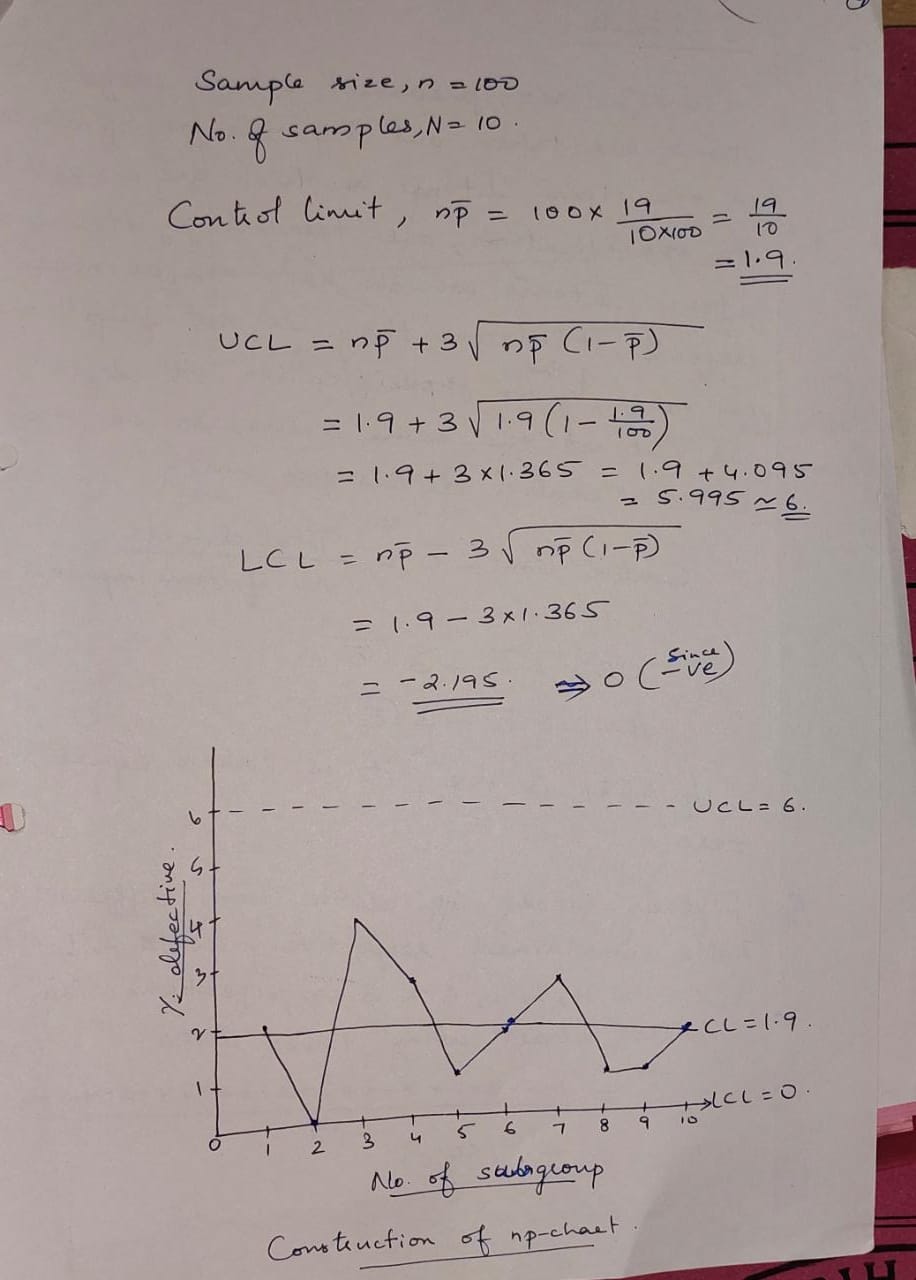 Sample size, n = 100
No. of samples, N = 10.
Control limit, np̄ = 100 x 19/10X100 = 19/10
= 1.9.
UCL = np̄ + 3√np̄ (1-p̄)
= 1.9 + 3√1.9(1- 1.9/100)
= 1.9 + 3 x 1.365 = 1.9 + 4.095
= 5.995 ≈ 6.
LCL = np̄ - 3√np̄ (1-p̄)
= 1.9 - 3 x 1.365
= -2.195. ⇒ 0 (since -ve)
6 UCL = 6.
% defective.
5
4
3
2 CL = 1.9.
1
LCL = 0.
0 1 2 3 4 5 6 7 8 9 10
No. of subgroup
Construction of np-chart.